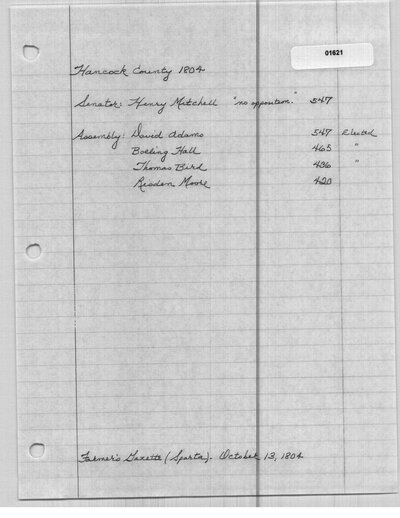 01621
Hancock County 1804
Senator: Henry Mitchell "no opposition." 547
Assembly: David Adams 547 Elected
Bolling Hall 465 "
Thomas Bird 436 "
Readen Moore 420
Farmer's Gazette (Sparta). October 13, 1804